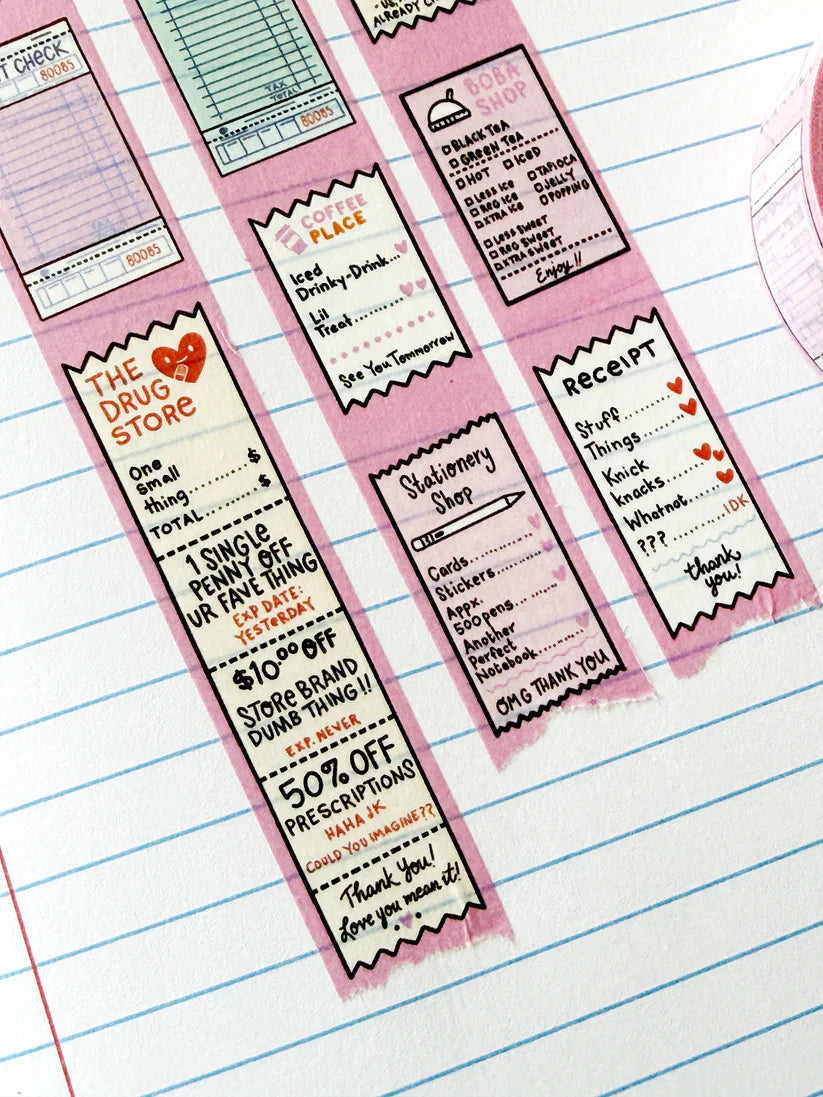 T CHECK
80085
80085
TAX
TOTAL
80085
THE
DRUG
STORE
One
small
thing..........$
TOTAL..........$
1 SINGLE
PENNY OFF
UR FAVE THING
EXP DATE:
YESTERDAY
$10.00 OFF
STORE BRAND
DUMB THING!!
EXP. NEVER
50% OFF
PRESCRIPTIONS
HAHA JK
COULD YOU IMAGINE??
Thank You!
Love you mean it!
COFFEE
PLACE
Iced
Drinky-Drink...
Lil
Treat..........
See You Tommorrow
Stationery
Shop
Cards..............
Stickers..........
Appx.
500 pens........
Another
Perfect
Notebook........
OMG THANK YOU
ALREADY
BOBA
SHOP
BLACK TEA
GREEN TEA
HOT ICED
LESS ICE TAPIOCA
REG ICE JELLY
XTRA ICE POPPING
LESS SWEET
REG SWEET
XTRA SWEET
Enjoy!!
RECEIPT
Stuff............
Things..........
Knick
knacks........
Whatnot.......
???..........IDK
thank
you!